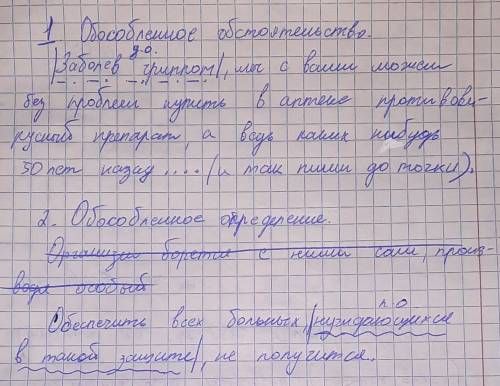 1. Обособленное обстоятельство.
д.о.
|Заболев гриппом|, мы с вами можем
без проблем купить в аптеке противови-
русный препарат, а ведь каких нибудь
50 лет назад .... (и так пиши до точки).
2. Обособленное определение.
Организм борется с ними сам, произ-
водя особый
п.о
Обеспечить всех больных, |нуждающихся
в такой защите|, не получится.